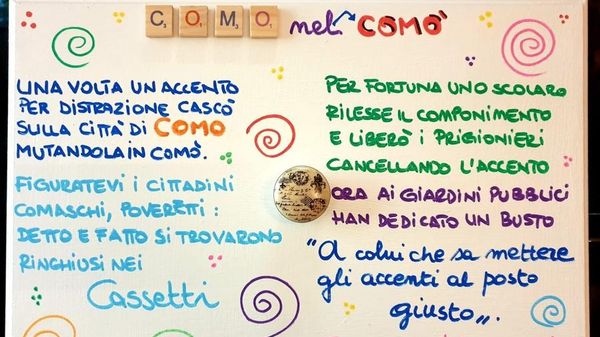 COMO nel COMÒ
UNA VOLTA UN ACCENTO
PER DISTRAZIONE CASCÒ
SULLA CITTÀ DI COMO
MUTANDOLA IN COMÒ.
FIGURATEVI I CITTADINI
COMASCHI, POVERETTI:
DETTO E FATTO SI TROVARONO
RINCHIUSI NEI
Cassetti
PER FORTUNA UNO SCOLARO
RILESSE IL COMPONIMENTO
E LIBERÒ I PRIGIONIERI
CANCELLANDO L'ACCENTO
ORA AI GIARDINI PUBBLICI
HAN DEDICATO UN BUSTO
"A colui che sa mettere
gli accenti al posto
giusto".